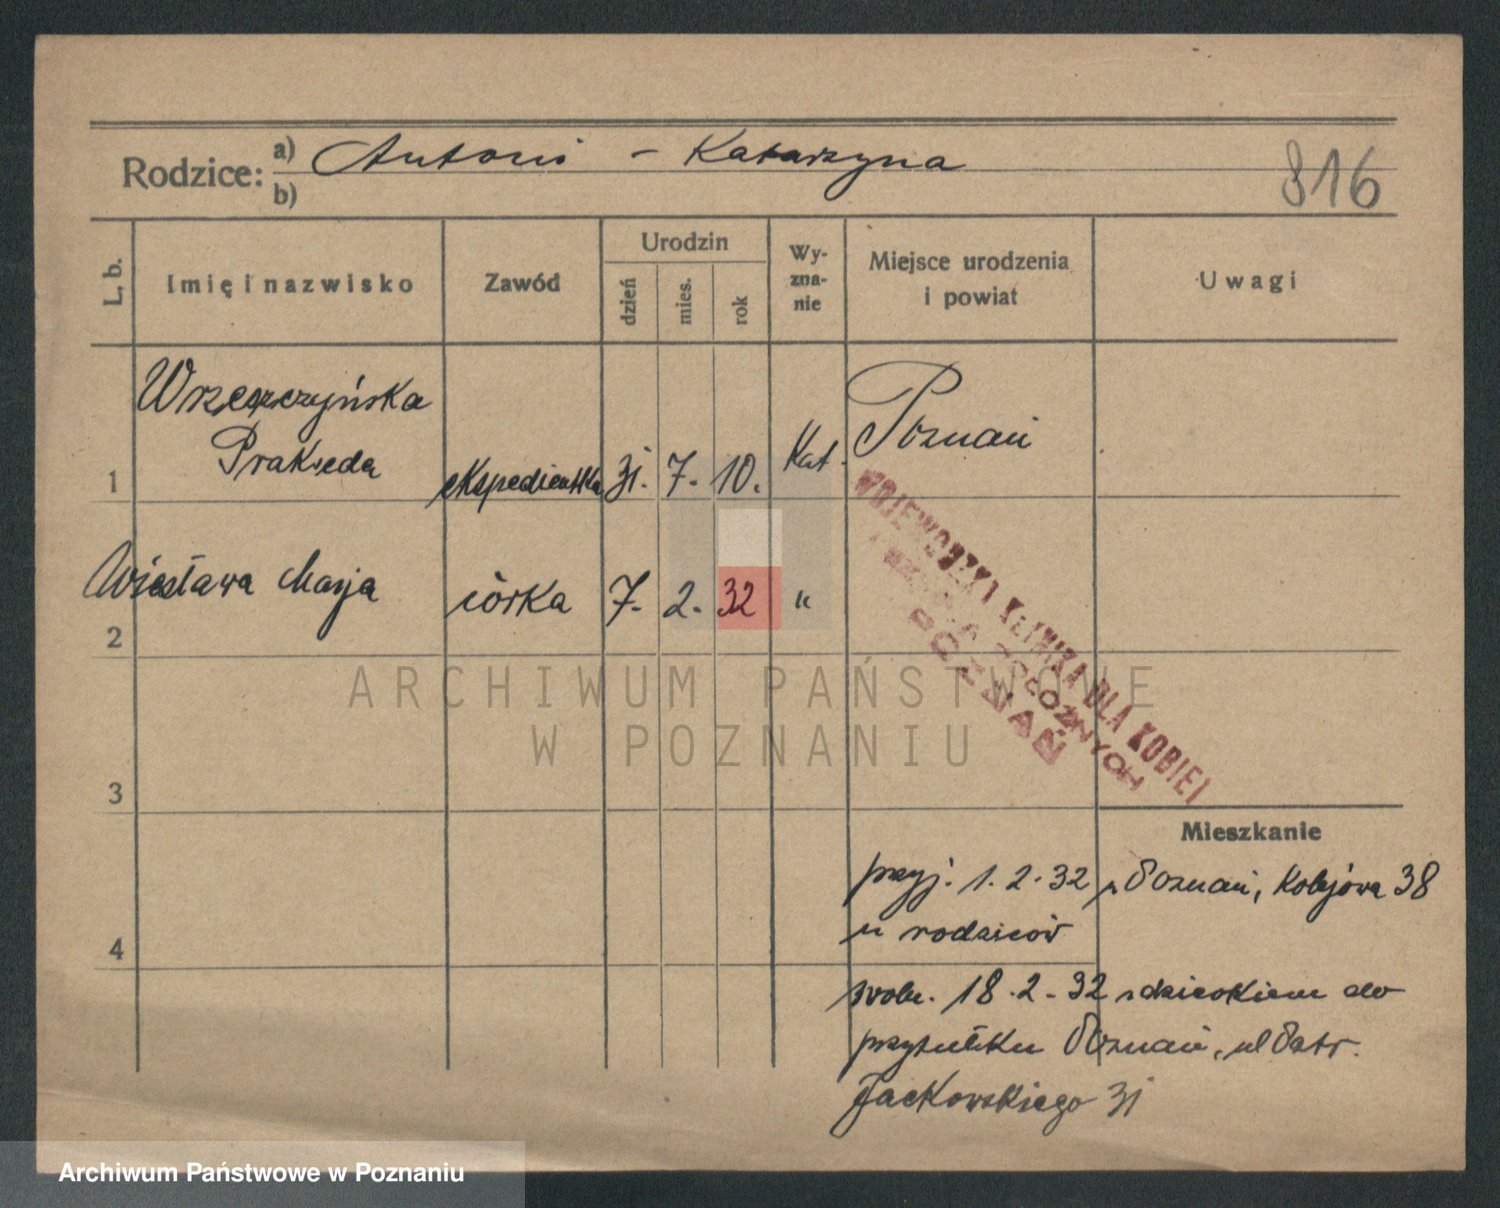 Rodzice: a) Antoni - Katarzyna
b)
816
L. b.
Imię i nazwisko
Zawód
Urodzin
dzień
mies.
rok
Wy-
zna-
nie
Miejsce urodzenia
i powiat
Uwagi
Prakseda
1
ekspedientka
31. 7. 10.
Kat.
Poznań
Wiesława Marja
2
córka
7. 2. 32
"
WOJEWÓDZKA KLINIKA DLA KOBIET
POŁOŻNYCH
POZNAŃ
ARCHIWUM PAŃSTWOWE
W POZNANIU
3
Mieszkanie
przyj. 1.2.32 z Poznań, Kolejowa 38
u rodziców
4
zwoln. 18.2.32 z dzieckiem do
przytułku Poznań, ul Patr.
Jackowskiego 31
Archiwum Państwowe w Poznaniu